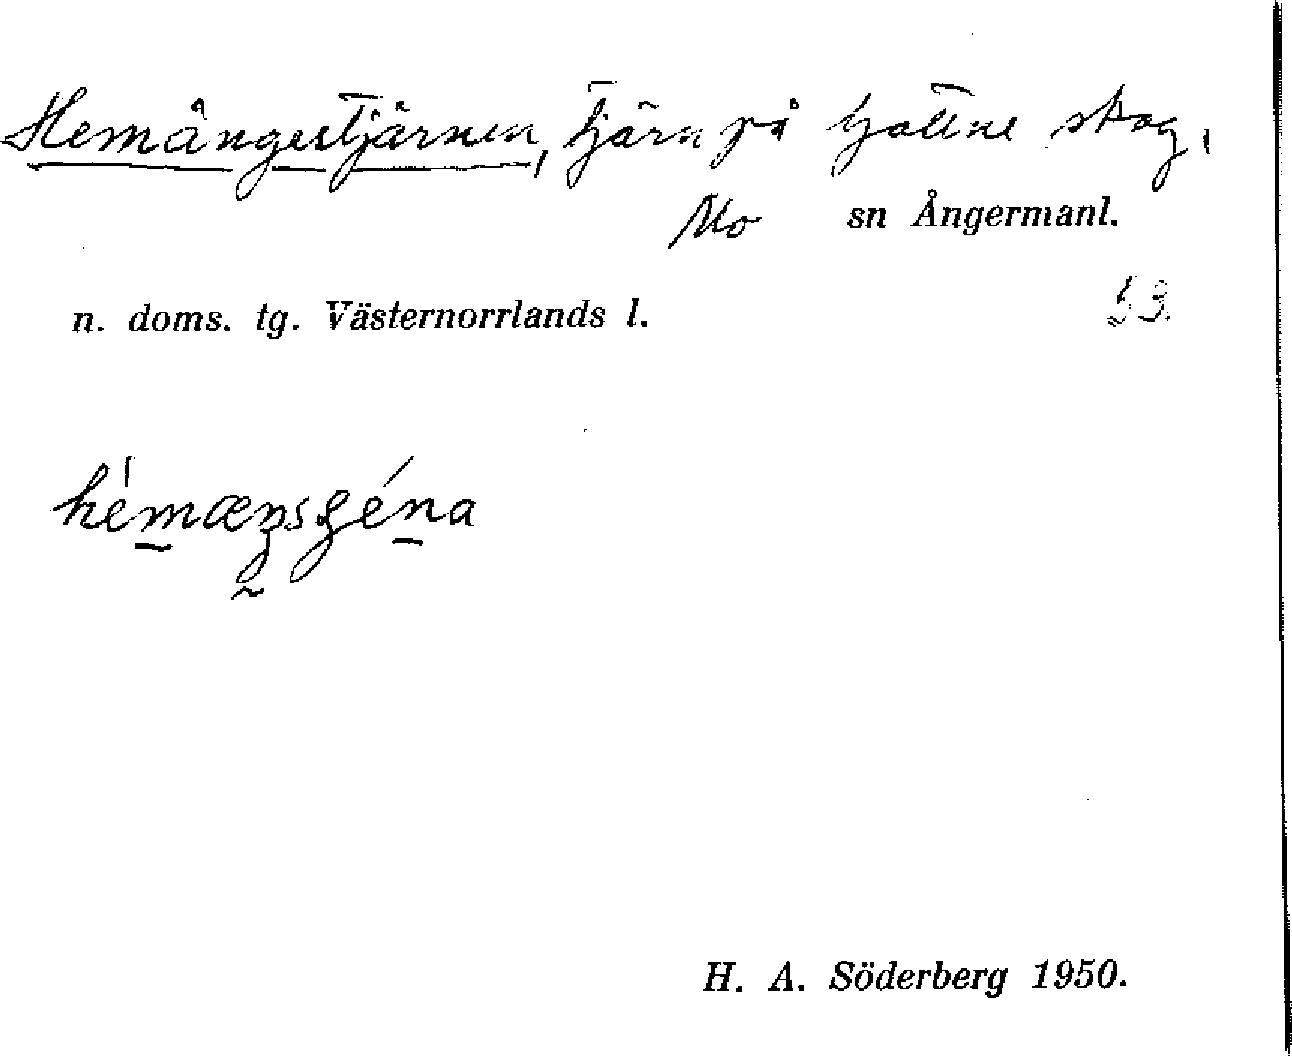 Hemångestjärnen, tjärn på Gottne skog,
Mo sn Ångermanl.
n. doms. tg. Västernorrlands l.
53.
H. A. Söderberg 1950.